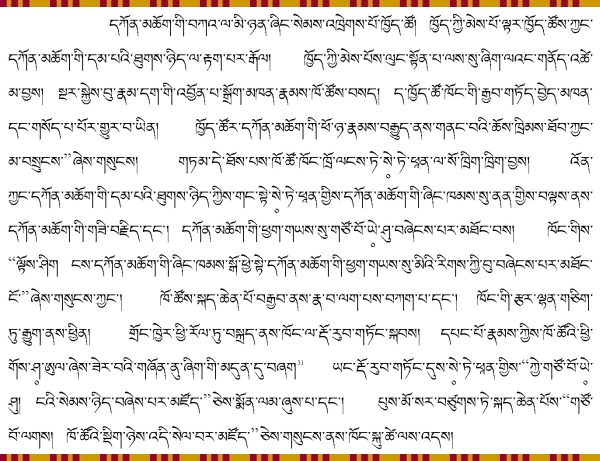 དཀོན་མཆོག་གི་བཀའ་ལ་མི་ཉན་ཞིང་སེམས་འཁྲེགས་པོ་ཁྱོད་ཚོ། ཁྱོད་ཀྱི་མེས་པོ་ལྟར་ཁྱོད་ཚོས་ཀྱང་
དཀོན་མཆོག་གི་དམ་པའི་ཐུགས་ཉིད་ལ་རྟག་པར་རྒོལ། ཁྱོད་ཀྱི་མེས་པོས་ལུང་སྟོན་པ་ལས་སུ་ཞིག་ལའང་གནོད་འཚེ་
མ་བྱས། སྔར་སྐྱེས་བུ་རྣམ་དག་གི་འབྱོན་པ་སྒྲོག་མཁན་རྣམས་ཁོ་ཚོས་བསད། ད་ཁྱོད་ཚོ་ཁོང་གི་རྒྱབ་གཏོད་བྱེད་མཁན་
དང་གསོད་པ་པོར་གྱུར་བ་ཡིན། ཁྱོད་ཚོར་དཀོན་མཆོག་གི་ཕོ་ཉ་རྣམས་བརྒྱུད་ནས་གནང་བའི་ཆོས་ཁྲིམས་ཐོབ་ཀྱང་
མ་བསྲུངས་”ཞེས་གསུངས། གཏམ་དེ་ཐོས་པས་ཁོ་ཚོ་ཁོང་ཁྲོ་ལངས་ཏེ་སེ༹་ཏེ་ཕཱན་ལ་སོ་ཁྲིག་ཁྲིག་བྱས། འོན་
ཀྱང་དཀོན་མཆོག་གི་དམ་པའི་ཐུགས་ཉིད་ཀྱིས་གང་སྟེ་སེ༹་ཏེ་ཕཱན་གྱིས་དཀོན་མཆོག་གི་ཞིང་ཁམས་སུ་ནན་གྱིས་བལྟས་ནས་
དཀོན་མཆོག་གི་གཟི་བརྗིད་དང་། དཀོན་མཆོག་གི་ཕྱག་གཡས་སུ་གཙོ་བོ་ཡེ༹་ཤུ་བཞེངས་པར་མཐོང་བས། ཁོང་གིས་
“ལྟོས་ཤིག ངས་དཀོན་མཆོག་གི་ཞིང་ཁམས་སྒོ་ཕྱེ་སྟེ་དཀོན་མཆོག་གི་ཕྱག་གཡས་སུ་མིའི་རིགས་ཀྱི་བུ་བཞེངས་པར་མཐོང་
ངོ་”ཞེས་གསུངས་ཀྱང་། ཁོ་ཚོས་སྐད་ཆེན་པོ་བརྒྱབ་ནས་རྣ་བ་ལག་པས་བཀག་པ་དང་། ཁོང་གི་རྩར་ལྷན་གཅིག་
ཏུ་རྒྱུག་ནས་ཕྱིན། གྲོང་ཁྱེར་ཕྱི་རོལ་ཏུ་བསྐྲད་ནས་ཁོང་ལ་རྡོ་རུབ་གཏོང་སྐབས། དཔང་པོ་རྣམས་ཀྱིས་ཁོ་ཚོའི་ཕྱི་
གོས་ཤ༹་ཨུལ་ཞེས་ཟེར་བའི་གཞོན་ནུ་ཞིག་གི་མདུན་དུ་བཞག་ ཡང་རྡོ་རུབ་གཏོང་དུས་སེ༹་ཏེ་ཕཱན་གྱིས་“ཀྱེ་གཙོ་བོ་ཡེ༹་
ཤུ། ངའི་སེམས་ཉིད་བཞེས་པར་མཛོད་”ཅེས་སྨོན་ལམ་ཞུས་པ་དང་། པུས་མོ་སར་བཙུགས་ཏེ་སྐད་ཆེན་པོས་“གཙོ་
བོ་ལགས། ཁོ་ཚོའི་སྡིག་ཉེས་འདི་སེལ་བར་མཛོད་”ཅེས་གསུངས་ནས་ཁོང་སྐུ་ཚེ་ལས་འདས།